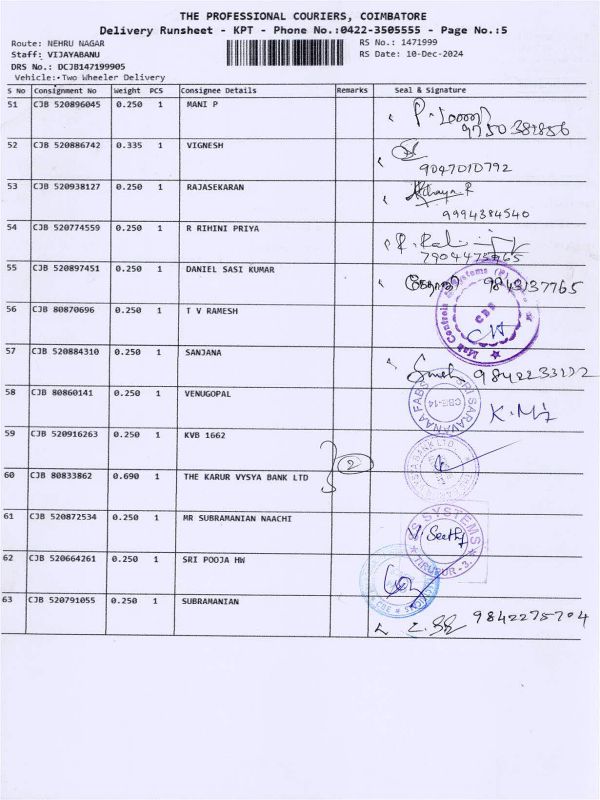 THE PROFESSIONAL COURIERS, COIMBATORE
Delivery Runsheet - KPT - Phone No.:0422-3505555 - Page No.:5
Route: NEHRU NAGAR
RS No.: 1471999
Staff: VIJAYABANU
RS Date: 10-Dec-2024
DRS No.: DCJB147199905
Vehicle:•Two Wheeler Delivery
S No Consignment No Weight PCS Consignee Details Remarks Seal & Signature
51 CJB 520896045 0.250 1 MANI P
52 CJB 520886742 0.335 1 VIGNESH
9047010792
53 CJB 520938127 0.250 1 RAJASEKARAN
9994384540
54 CJB 520774559 0.250 1 R RIHINI PRIYA
55 CJB 520897451 0.250 1 DANIEL SASI KUMAR 9843137765
56 CJB 80870696 0.250 1 T V RAMESH
CBE
57 CJB 520884310 0.250 1 SANJANA
58 CJB 80860141 0.250 1 VENUGOPAL
SRI SARAVANAA FAB
CBE-14
59 CJB 520916263 0.250 1 KVB 1662
VYSYA BANK LTD
2
60 CJB 80833862 0.690 1 THE KARUR VYSYA BANK LTD
61 CJB 520872534 0.250 1 MR SUBRAMANIAN NAACHI
SYSTEMS
TIRUPUR-3
62 CJB 520664261 0.250 1 SRI POOJA HW
CBE
63 CJB 520791055 0.250 1 SUBRAMANIAN
9842275704